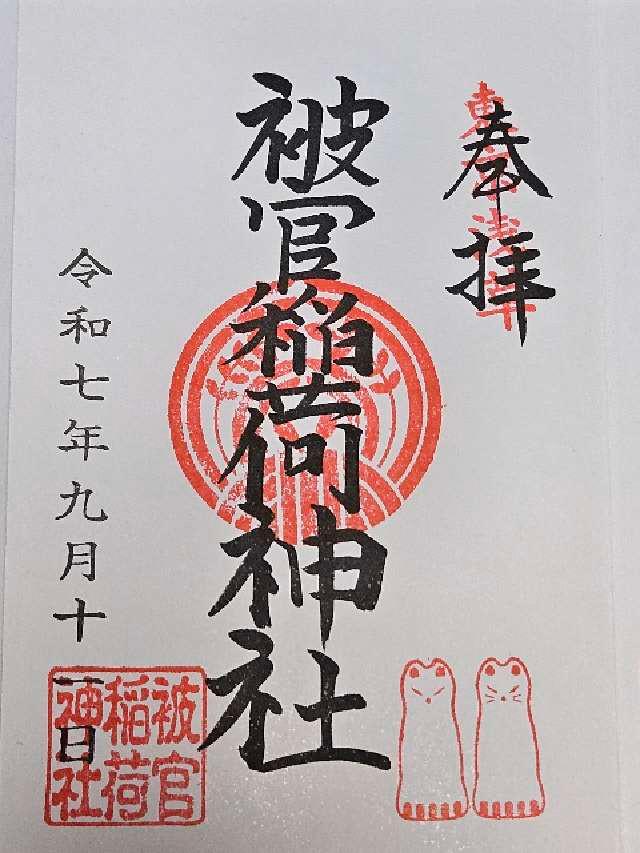 奉拝
東京浅草
被官稲荷神社
令和七年九月十一日
被官
稲荷
神社